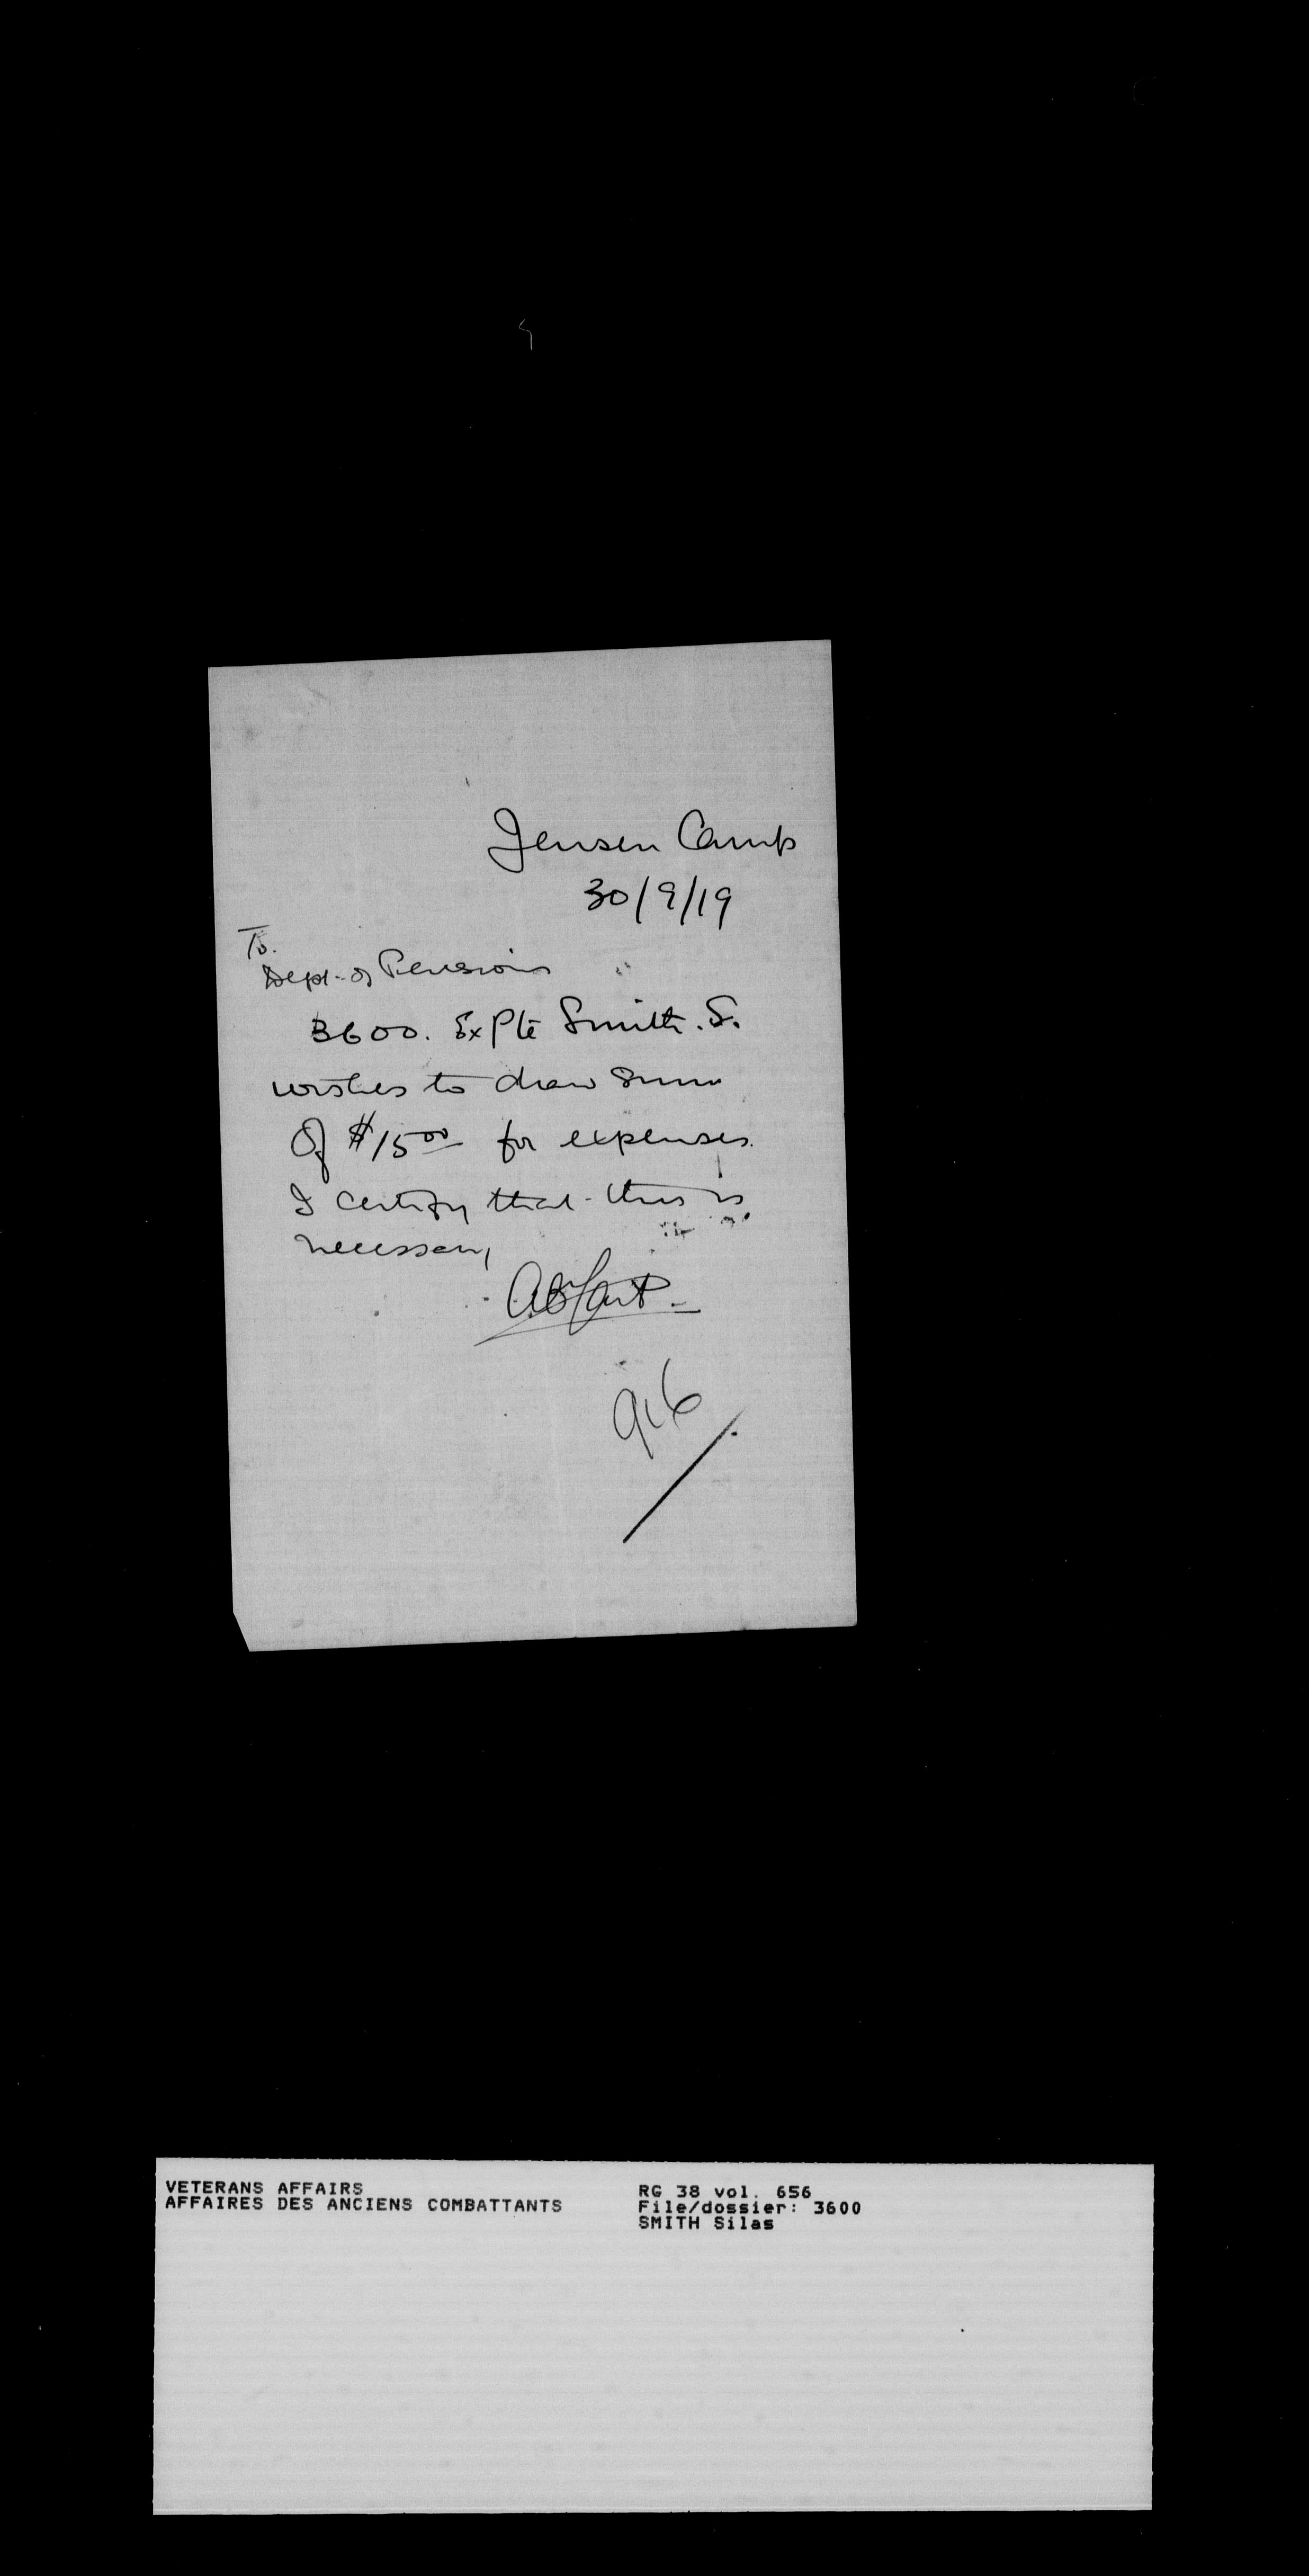 Jensen Camp
30/9/19
To.
Dept. of Pensions
3600. Ex Pte Smith. S.
wishes to draw sum
Of $15.00 for expenses.
I certify that this is
necessary
916
VETERANS AFFAIRS
AFFAIRES DES ANCIENS COMBATTANTS
RG 38 vol. 656
File/dossier: 3600
SMITH Silas